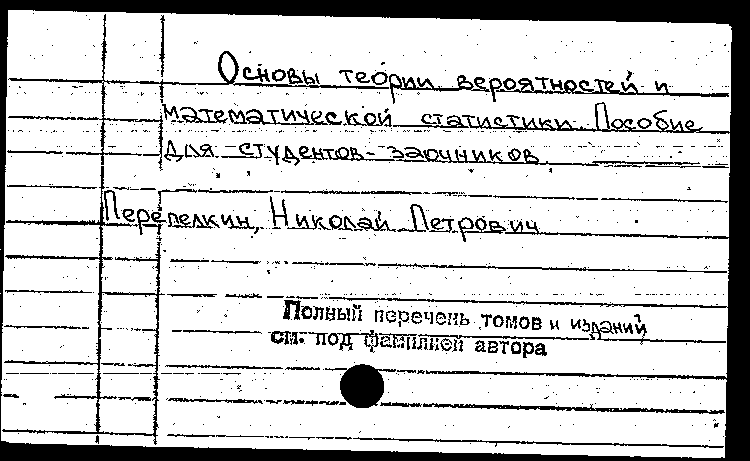 Основы теории вероятностей и
математической статистики. Пособие
для студентов-заочников.
Перепелкин, Николай Петрович
Полный перечень томов и изданий
см. под фамилией автора